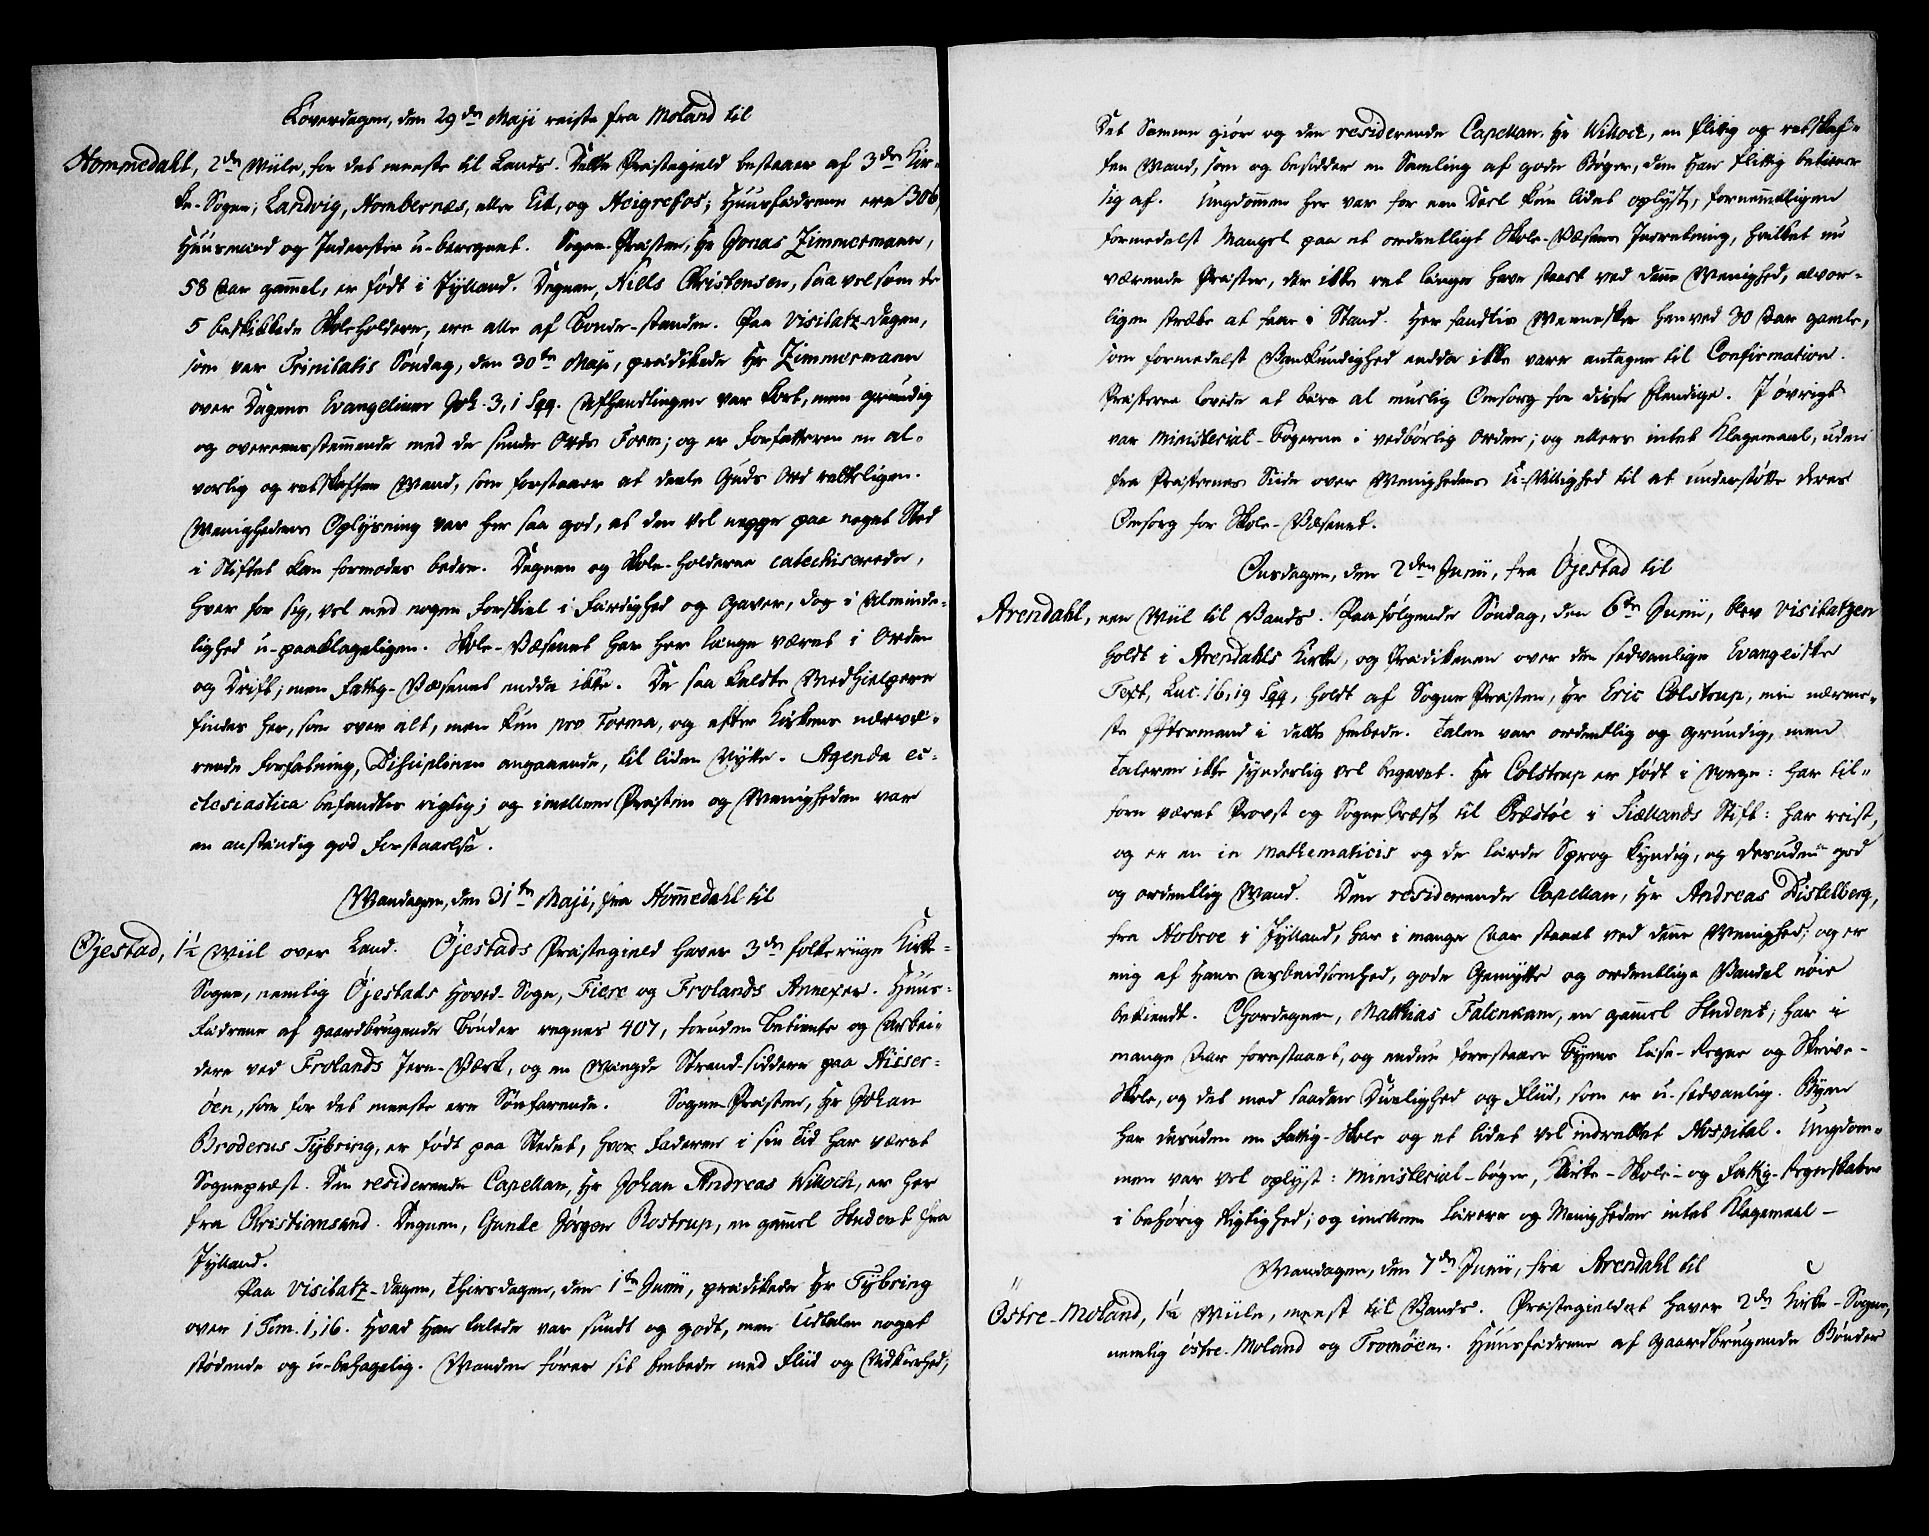 Løverdagen, den 29de Maji reiste fra Moland til
Hommedahl, 2de Miile, for det meeste til Lands. Dette Præstegield bestaaer af 3de Kir-
ke-Sogne; Landvig, Hombernæs, eller Eid, og Heigrefos; Huusfædrene ere 306,
Huusmænd og Inderster u-beregnet. Sogne-Præsten, Hr Jonas Zimmermann,
58 Aar gammel, er født i Jylland. Degnen, Niels Christensen, saavelsom de
5 beskikkede Skoleholdere, ere alle af Bonde-standen. Paa Visitatz-Dagen,
som var Trinitatis Søndag, den 30te Maji, prædikede Hr Zimmermann
over Dagens Evangelium Joh. 3, 1 sqq. Afhandlingen var kort, men grundig
og overeensstemmende med de sunde Ords Form; og er Forfatteren en al-
vorlig og retskaffen Mand, som forstaaer at deele Guds Ord rettelligen.
Menighedens Oplysning var her saa god, at den vel neppe paa noget Sted
i Stiftet kan formodes bedre. Degnen og Skole-Holderne catechiserede,
hver for sig, vel med nogen Forskiel i Færdighed og Gaver, dog i Alminde-
lighed u-paaklageligen. Skole-Væsenet har her længe været i Orden
og Drift; men Fattig-Væsenet endda ikke. De saa kaldte Medhielpere
findes her, som over alt, men kun pro Forma, og efter Kirkens nærvæ-
rende Forfatning, Disciplinen angaaende, til liden Nytte. Agenda ec-
clesiastica befandtes rigtig; og imellem Præsten og Menigheden var
en anstændig god Forstaaelse.
Mandagen, den 31te Maji, fra Hommedahl til
Øjestad, 1½ Miil over Land. Øjestads Præstegield haver 3de folkerige Kirke-
Sogne, nemlig Øjestads Hoved-Sogn, Fiere og Frolands Annexer. Huus-
fædrene af gaardbrugende Bønder regnes 407, foruden Betiente og Arbei-
dere ved Frolands Jern-Værk, og en Mængde Strand-siddere paa Hisser-
øen, som for det meeste ere Søefarende. Sogne-Præsten, Hr Johan
Broderus Tybring, er født paa Stedet, hvor Faderen i sin Tid har været
Sognepræst. Den residerende Capellan, Hr Johan Andreas Willoch, er her
fra Christiansand. Degnen, Gunde Jørgen Rostrup, en gammel Student fra
Jylland.
Paa Visitatz-Dagen, Thirsdagen, den 1te Junii, prædikede Hr Tybring
over 1 Tim. 1, 16. Hvad han talede var sundt og godt, men Udtalen noget
stødende og u-behagelig. Manden fører sit Embede med Fliid og Nidkierhed,
Det Samme giør og den residerende Capellan Hr Willoch, en flittig og retskaf-
fen Mand, som og besidder en Samling af gode Bøger, dem han flittig betiener
sig af. Ungdommen her var for een Deel kun lidet oplyst, fornemmeligen
formedelst Mangel paa et ordentligt Skole-Væsens Indretning, hvilket nu
værende Præster, der ikke ret længe have staaet ved denne Menighed, alvor-
ligen stræbe at faae i Stand. Her fandtes Mennesker henved 30 Aar gamle,
som formedelst Vankundighed endda ikke vare antagne til Confirmation.
Præsterne lovede at bære al muelig Omsorg for disse Elendige. I øvrigt
var Ministerial-Bøgerne i vedbørlig Orden; og ellers intet Klagemaal, uden
fra Præsternes Siide over Menighedens U-Villighed til at understøtte deres
Omsorg for Skole-Væsenet.
Onsdagen, den 2den Junii, fra Øjestad til
Arendahl, een Miil til Vands. Paafølgende Søndag, den 6te Junii, blev Visitatzen
holdt i Arendahls Kirke, og Prædikenen over den sedvanlige Evangeliske
Text, Luc. 16, 19 sqq, holdt af Sogne Præsten, Hr Eric Colstrup, min nærme-
ste Eftermand i dette Embede. Talen var ordentlig og grundig, men
Taleren ikke synderlig vel begavet. Hr Colstrup er født i Norge: har til-
forn været Provst og Sogne Præst til Præstøe i Siællands Stift: har reist,
og er en in Mathematicis og de lærde Sprog kyndig, og desuden god
og ordentlig Mand. Den residerende Capellan, Hr Andreas Distelberg,
fra Hobroe i Jylland, har i mange Aar staaet ved denne Menighed, og er
mig af hans Arbeidsomhed, gode Gemytte og ordentlige Vandel nøie
bekiendt. Chordegnen, Mathias Falenkam, en gammel Student, har i
mange Aar forestaaet, og endnu forestaaer Byens Læse- Regne og Skrive-
Skole, og det med saadan Duelighed og Fliid, som er u-sedvanlig. Byen
har desuden en Fattig-Skole og et lidet vel indrettet Hospital. Ungdom-
men var vel oplyst: Ministerial-bøger, Kirke- Skole- og Fattig-Regnskaber
i behørig Rigtighed; og imellem Lærere og Menigheder intet Klagemaal –
Mandagen, den 7de Junii, fra Arendahl til
Östre-Moland, 1½ Miile, meest til Vands. Præstegieldet haver 2de Kirke-Sogne,
nemlig östre-Moland og Tromøen. Huusfædrene af gaardbrugende Bønder